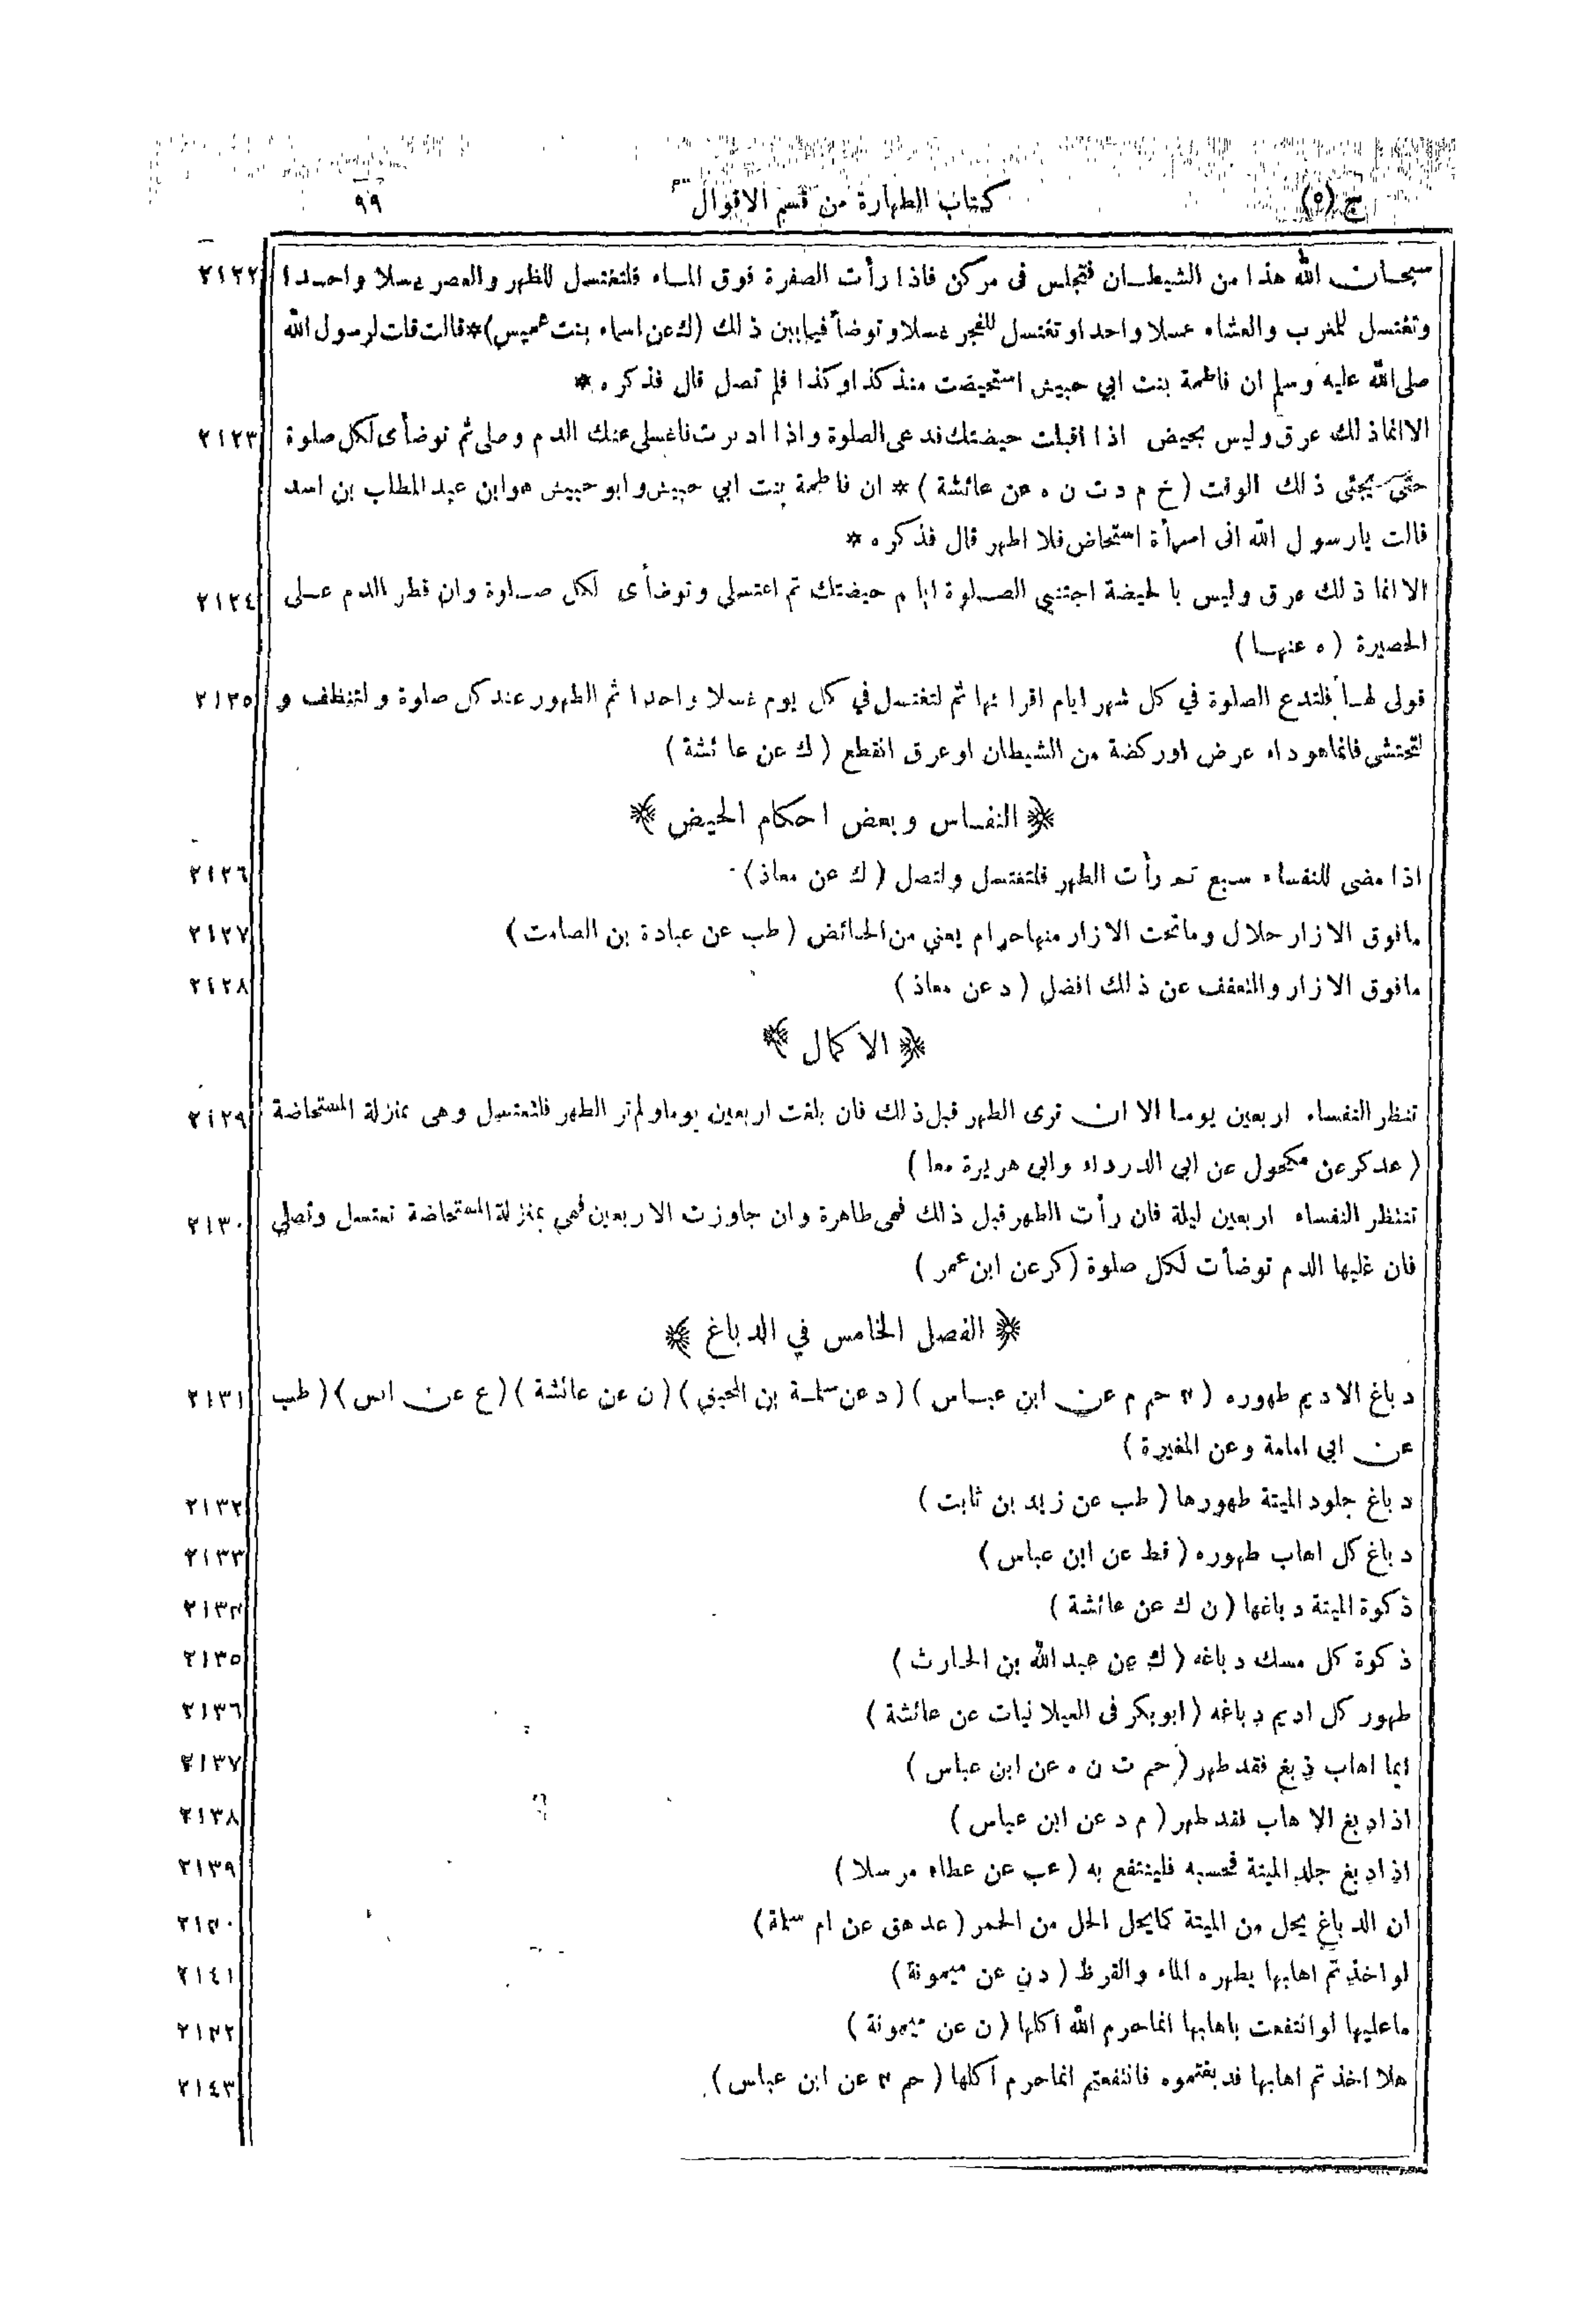 ج (٥) كتاب الطهارة من قسم الاقوال ٩٩
سبحان الله هذا من الشيطان فتجلس فى مركن فاذا رأت الصفرة فوق الماء فلتغتسل للظهر والعصر غسلا واحدا ٢١٢٢
وتغتسل للمغرب والعشاء غسلا واحدا وتغتسل للفجر غسلا وتوضأ فيمابين ذلك (ك عن اسماء بنت عميس)* قالت قلت لرسول الله
صلى الله عليه وسلم ان فاطمة بنت ابي حبيش استحيضت منذ كذا وكذا فلم تصل قال فذكره *
الا انما ذلك عرق وليس بحيض اذا اقبلت حيضتك فدعى الصلوة واذا ادبرت فاغسلى عنك الدم وصلى ثم توضأى لكل صلوة ٢١٢٣
حتى يجئى ذلك الوقت (خ م د ت ن ه عن عائشة) * ان فاطمة بنت ابي حبيش وابو حبيش هو ابن عبد المطلب بن اسد
قالت يارسول الله انى امرأة استحاض فلا اطهر قال فذكره *
الا انما ذلك عرق وليس بالحيضة اجتنبي الصلوة ايام حيضتك ثم اغتسلي وتوضأى لكل صلوة وان قطر الدم على ٢١٢٤
الحصيرة (ه عنها)
قولى لها فلتدع الصلوة في كل شهر ايام اقرائها ثم لتغتسل في كل يوم غسلا واحدا ثم الطهور عند كل صلوة ولتنظف و ٢١٢٥
لتحتشى فانماهو داء عرض او ركضة من الشيطان او عرق انقطع (ك عن عائشة)
﴿ النفاس وبعض احكام الحيض ﴾
اذا مضى للنفساء سبع ثم رأت الطهر فلتغتسل ولتصل (ك عن معاذ) ٢١٢٦
مافوق الازار حلال وماتحت الازار منها حرام يعني من الحائض (طب عن عبادة بن الصامت) ٢١٢٧
مافوق الازار والتعفف عن ذلك افضل (د عن معاذ) ٢١٢٨
﴿ الاكمال ﴾
تنظر النفساء اربعين يوما الا ان ترى الطهر قبل ذلك فان بلغت اربعين يوما ولم تر الطهر فلتغتسل وهى بمنزلة المستحاضة ٢١٢٩
(عد كر عن مكحول عن ابى الدرداء وابى هريرة معا)
تنتظر النفساء اربعين ليلة فان رأت الطهر قبل ذلك فهى طاهرة وان جاوزت الاربعين فهي بمنزلة المستحاضة تغتسل وتصلي ٢١٣٠
فان غلبها الدم توضأت لكل صلوة (كر عن ابن عمر)
﴿ الفصل الخامس في الدباغ ﴾
دباغ الاديم طهوره ( حم م عن ابن عباس) (د عن سلمة بن المحبق) (ن عن عائشة) (ع عن انس) (طب ٢١٣١
عن ابي امامة وعن المغيرة)
دباغ جلود الميتة طهورها (طب عن زيد بن ثابت) ٢١٣٢
دباغ كل اهاب طهوره (قط عن ابن عباس) ٢١٣٣
ذكوة الميتة دباغها (ن ك عن عائشة) ٢١٣٤
ذكوة كل مسك دباغه (ك عن عبد الله بن الحارث) ٢١٣٥
طهور كل اديم دباغه (ابوبكر فى الغيلانيات عن عائشة) ٢١٣٦
ايما اهاب دبغ فقد طهر (حم ت ن ه عن ابن عباس) ٢١٣٧
اذا دبغ الاهاب فقد طهر (م د عن ابن عباس) ٢١٣٨
اذا دبغ جلد الميتة فحسبه فلينتفع به (عب عن عطاء مرسلا) ٢١٣٩
ان الدباغ يحل من الميتة كمايحل الخل من الخمر (عد هق عن ام سلمة) ٢١٤٠
لو اخذتم اهابها يطهره الماء والقرظ (د ن عن ميمونة) ٢١٤١
ماعليها لو انتفعت باهابها انماحرم الله اكلها (ن عن ميمونة) ٢١٤٢
هلا اخذتم اهابها فدبغتموه فانتفعتم انماحرم اكلها (حم ٤ عن ابن عباس) ٢١٤٣